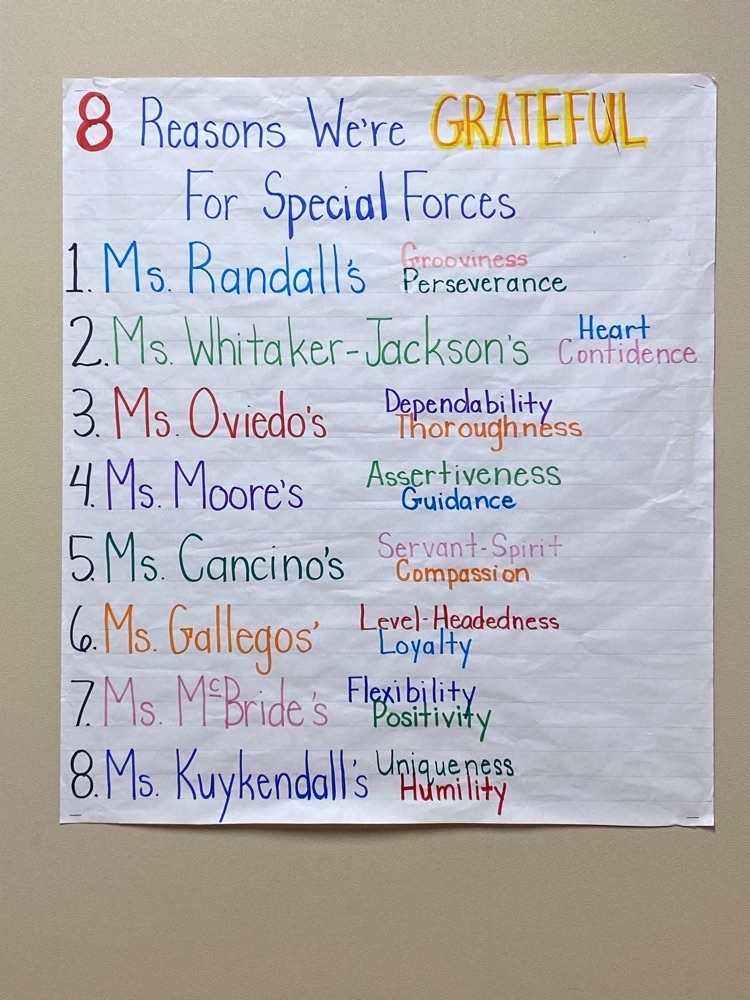 8 Reasons We're GRATEFUL
For Special Forces
1. Ms. Randall's Grooviness
Perseverance
2. Ms. Whitaker-Jackson's Heart
Confidence
3. Ms. Oviedo's Dependability
Thoroughness
4. Ms. Moore's Assertiveness
Guidance
5. Ms. Cancino's Servant-Spirit
Compassion
6. Ms. Gallegos' Level-Headedness
Loyalty
7. Ms. McBride's Flexibility
Positivity
8. Ms. Kuykendall's Uniqueness
Humility